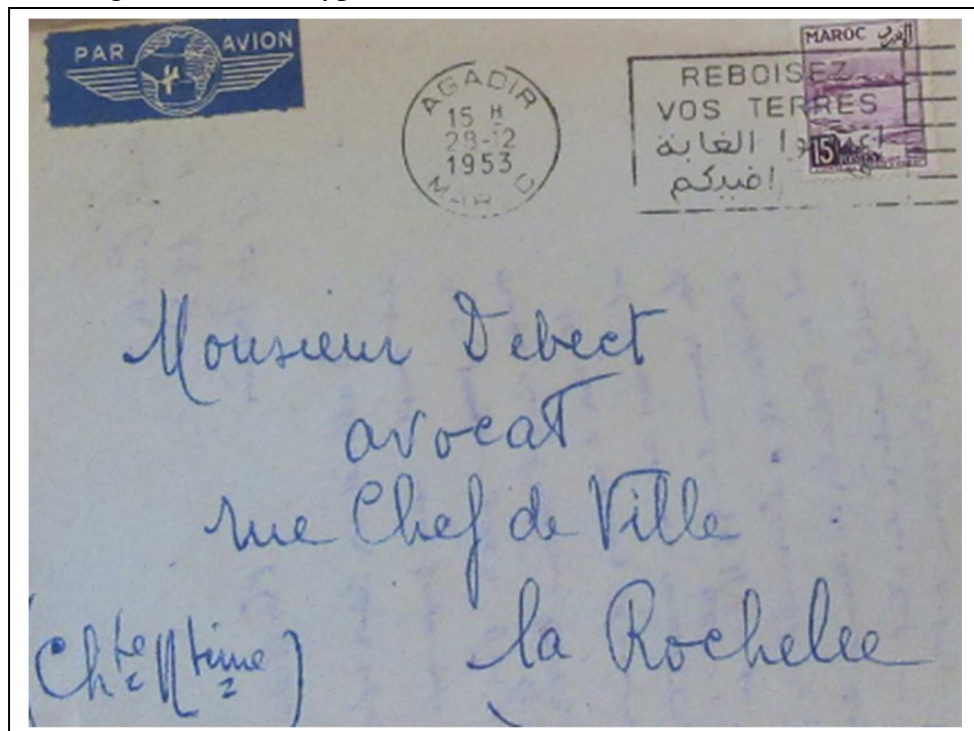 PAR AVION
MAROC المغرب
AGADIR
15 H
28-12
1953
MAROC
REBOISEZ
VOS TERRES
الغابة
15
Monsieur Debect
avocat
rue Chef de Ville
la Rochelle
(Chte Mtime)